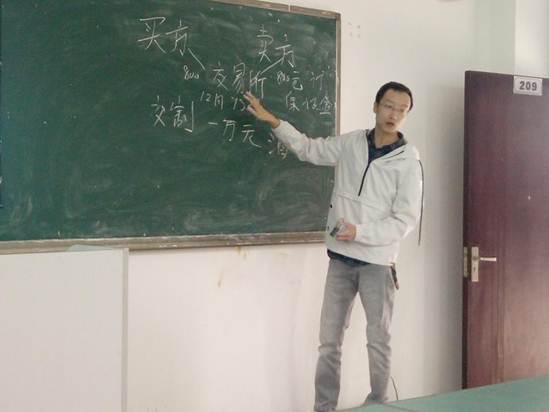 买方 卖方
800 交易所 800元
12月15 保证金
交割 一万元
209